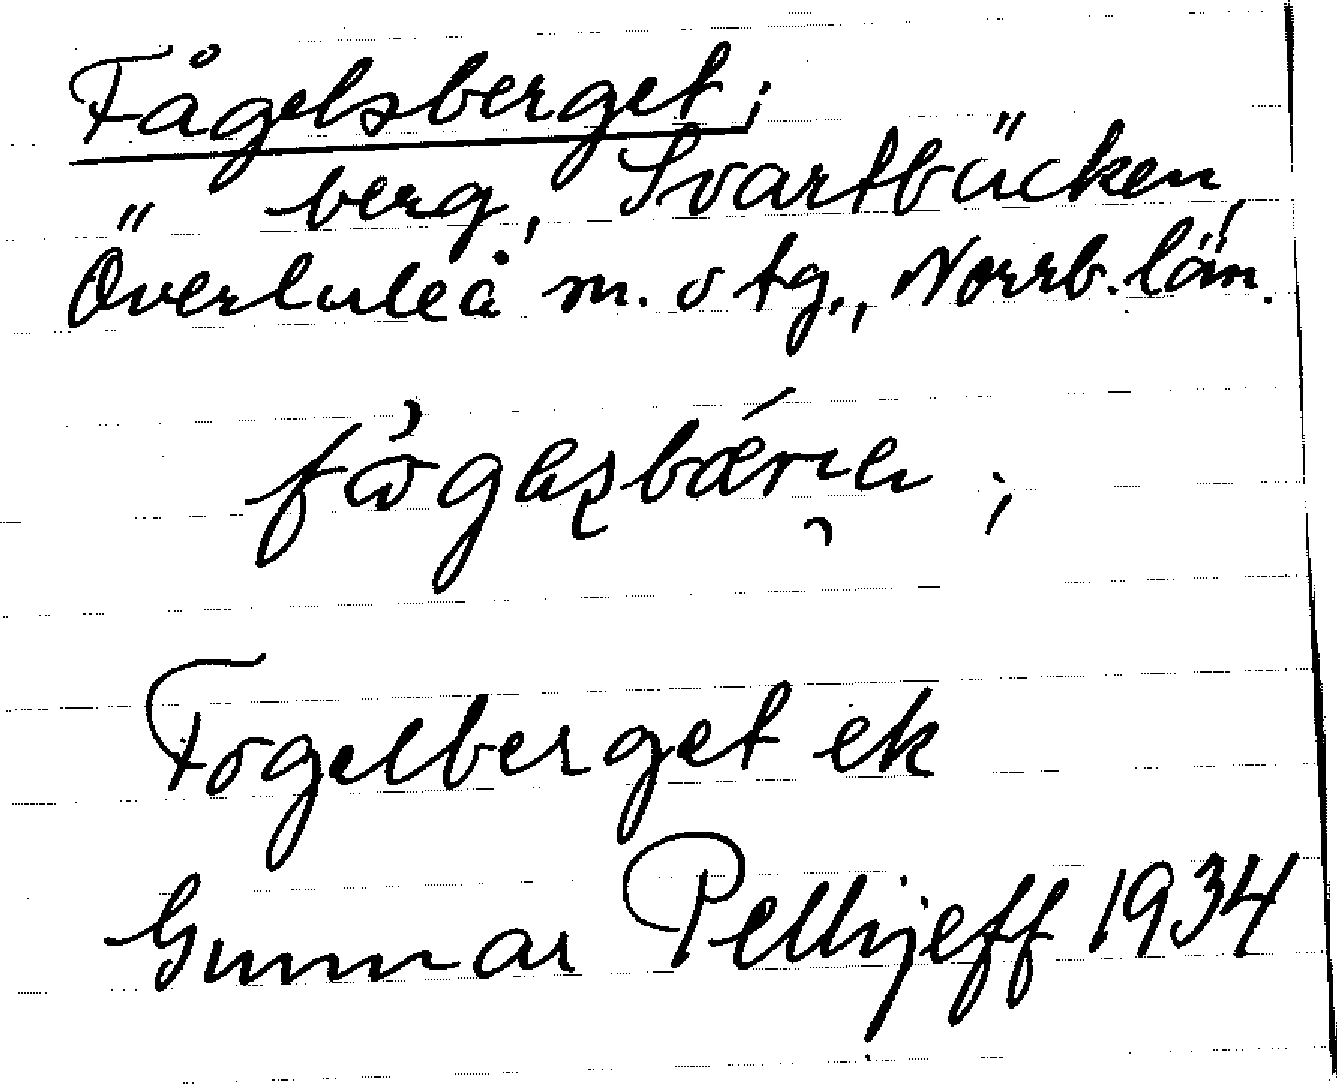 Fågelsberget;
" berg, Svartbäcken,
Överluleå m. o tg., Norrb. län.
Fogelberget ek
Gunnar Pellijeff 1934